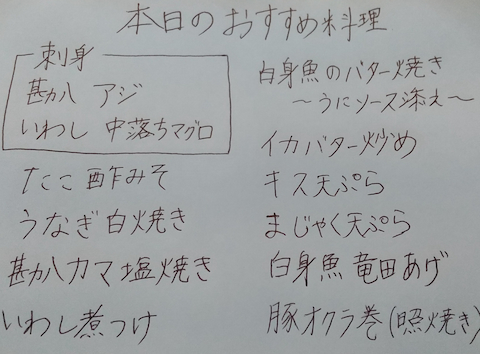 本日のおすすめ料理
刺身
勘八 アジ
いわし 中落ちマグロ
たこ酢みそ
うなぎ白焼き
勘八カマ塩焼き
いわし煮つけ
白身魚のバター焼き
～うにソース添え～
イカバター炒め
キス天ぷら
まじゃく天ぷら
白身魚竜田あげ
豚オクラ巻(照焼き)